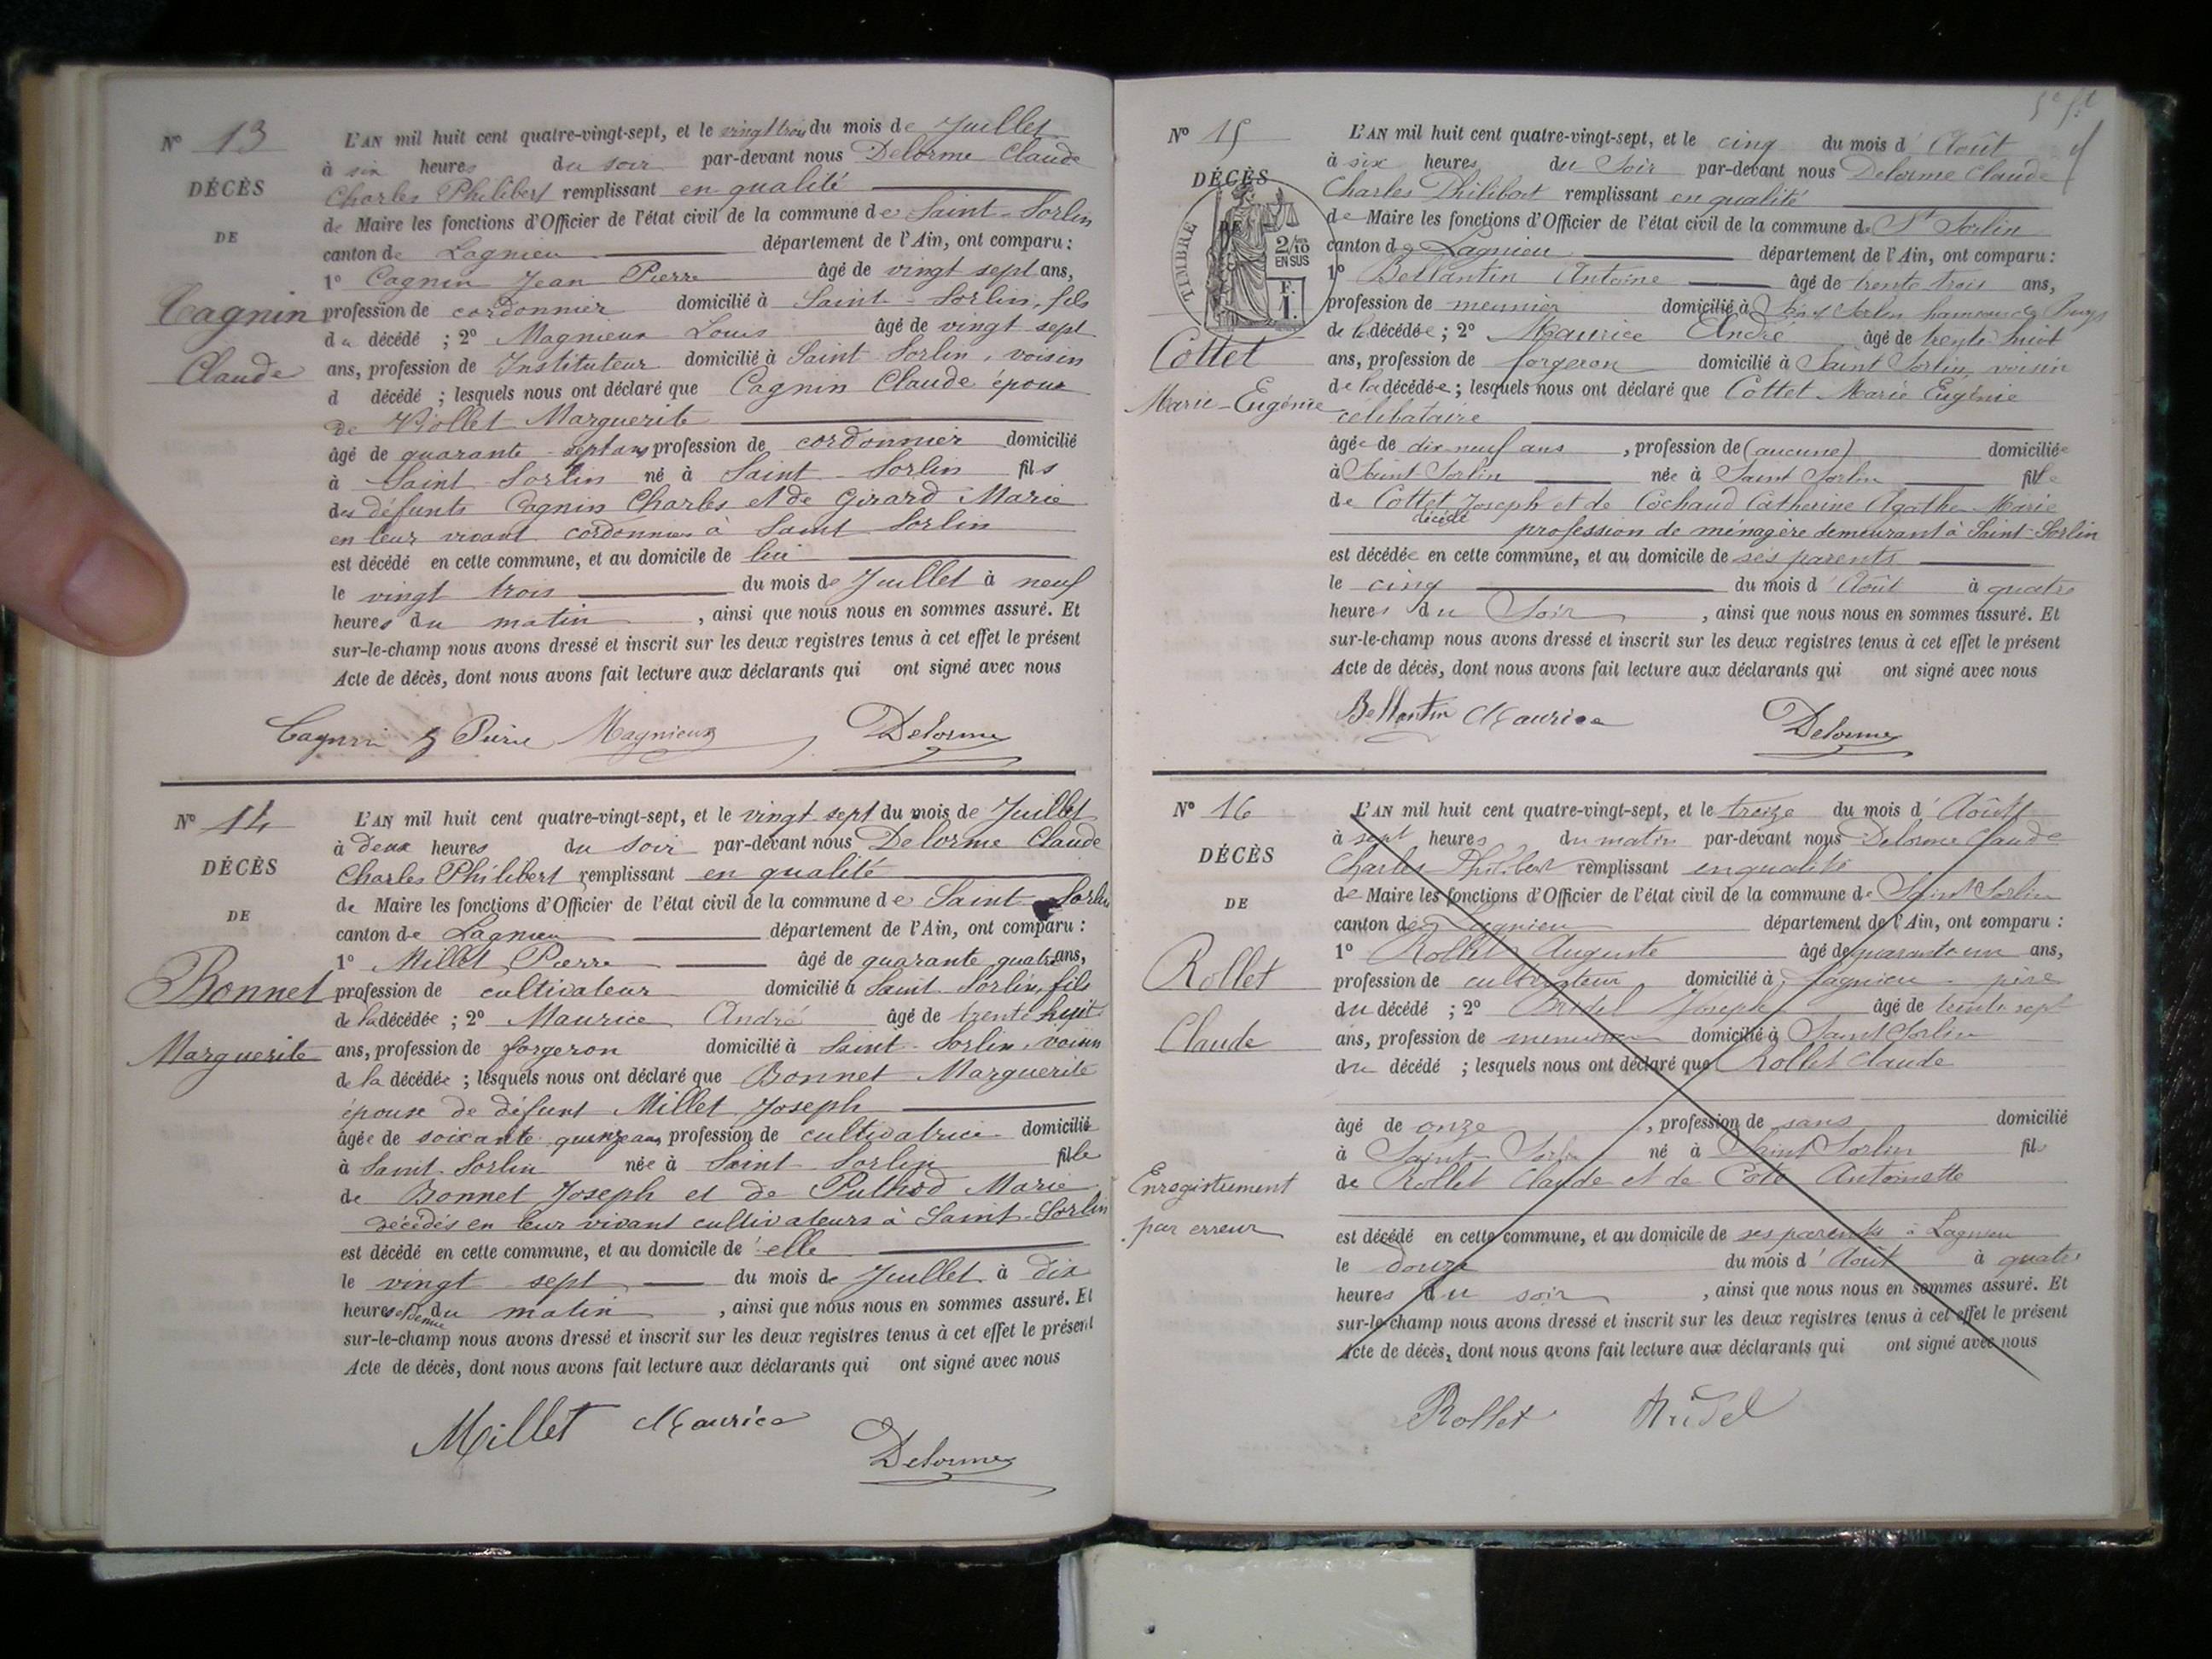 Nº 13
DÉCÈS
DE
Cagnin
Claude
L'AN mil huit cent quatre-vingt-sept, et le vingt trois du mois de Juillet
à six heures du soir par-devant nous Delorme Claude
Charles Philibert remplissant en qualité
de Maire les fonctions d'Officier de l'état civil de la commune de Saint-Sorlin
canton de Lagnieu département de l'Ain, ont comparu :
1º Cagnin Jean Pierre âgé de vingt sept ans,
profession de cordonnier domicilié à Saint-Sorlin, fils
du décédé ; 2º Magnieux Louis âgé de vingt sept
ans, profession de Instituteur domicilié à Saint Sorlin, voisin
d décédé ; lesquels nous ont déclaré que Cagnin Claude époux
de Viollet Marguerite
âgé de quarante-sept ans profession de cordonnier domicilié
à Saint Sorlin né à Saint-Sorlin fils
des défunts Cagnin Charles et de Girard Marie
en leur vivant cordonniers à Saint Sorlin
est décédé en cette commune, et au domicile de lui
le vingt trois du mois de Juillet à neuf
heures du matin , ainsi que nous nous en sommes assuré. Et
sur-le-champ nous avons dressé et inscrit sur les deux registres tenus à cet effet le présent
Acte de décès, dont nous avons fait lecture aux déclarants qui ont signé avec nous
Cagnin Pierre Magnieux Delorme
Nº 14
DÉCÈS
DE
Bonnet
Marguerite
L'AN mil huit cent quatre-vingt-sept, et le vingt sept du mois de Juillet
à deux heures du soir par-devant nous Delorme Claude
Charles Philibert remplissant en qualité
de Maire les fonctions d'Officier de l'état civil de la commune de Saint-Sorlin
canton de Lagnieu département de l'Ain, ont comparu :
1º Millet Pierre âgé de quarante quatre ans,
profession de cultivateur domicilié à Saint Sorlin, fils
de la décédée ; 2º Maurice André âgé de trente huit
ans, profession de forgeron domicilié à Saint-Sorlin, voisin
de la décédée ; lesquels nous ont déclaré que Bonnet Marguerite
épouse de défunt Millet Joseph
âgée de soixante quinze ans, profession de cultivatrice domicilié
à Saint Sorlin née à Saint-Sorlin fille
de Bonnet Joseph et de Puthod Marie
décédés en leur vivant cultivateurs à Saint-Sorlin
est décédé en cette commune, et au domicile de elle
le vingt sept du mois de Juillet à dix
heures et demie du matin , ainsi que nous nous en sommes assuré. Et
sur-le-champ nous avons dressé et inscrit sur les deux registres tenus à cet effet le présent
Acte de décès, dont nous avons fait lecture aux déclarants qui ont signé avec nous
Millet Maurice
Delorme
5e ft
Nº 15
DÉCÈS
DE
TIMBRE
2/10 EN SUS
F. 1.
Cottet
Marie-Eugénie
L'AN mil huit cent quatre-vingt-sept, et le cinq du mois d'Août
à six heures du Soir par-devant nous Delorme Claude
Charles Philibert remplissant en qualité
de Maire les fonctions d'Officier de l'état civil de la commune de St Sorlin
canton de Lagnieu département de l'Ain, ont comparu :
1º Bellantin Antoine âgé de trente trois ans,
profession de meunier domicilié à Saint Sorlin hameau de
de la décédée ; 2º Maurice André âgé de trente huit
ans, profession de forgeron domicilié à Saint Sorlin, voisin
de la décédée ; lesquels nous ont déclaré que Cottet Marie Eugénie
célibataire
âgée de dix-neuf ans , profession de (aucune) domiciliée
à Saint Sorlin née à Saint Sorlin fille
de Cottet Joseph et de Cochaud Catherine Agathe Marie
décédé profession de ménagère demeurant à Saint-Sorlin
est décédée en cette commune, et au domicile de ses parents
le cinq du mois d'Août à quatre
heures du Soir , ainsi que nous nous en sommes assuré. Et
sur-le-champ nous avons dressé et inscrit sur les deux registres tenus à cet effet le présent
Acte de décès, dont nous avons fait lecture aux déclarants qui ont signé avec nous
Bellantin Maurice Delorme
Nº 16
DÉCÈS
DE
Rollet
Claude
Enregistrement
par erreur
L'AN mil huit cent quatre-vingt-sept, et le treize du mois d'Août
à sept heures du matin par-devant nous Delorme Claude
Charles Philibert remplissant en qualité
de Maire les fonctions d'Officier de l'état civil de la commune de Saint Sorlin
canton de Lagnieu département de l'Ain, ont comparu :
1º Rollet Auguste âgé de quarante un ans,
profession de cultivateur domicilié à Lagnieu père
du décédé ; 2º Bridel Joseph âgé de trente sept
ans, profession de domicilié à Saint Sorlin
du décédé ; lesquels nous ont déclaré que Rollet Claude
âgé de onze , profession de sans domicilié
à Saint-Sorlin né à Saint Sorlin fils
de Rollet Claude et de Cote Antoinette
est décédé en cette commune, et au domicile de ses parents à Lagnieu
le douze du mois d'Août à quatre
heures du soir , ainsi que nous nous en sommes assuré. Et
sur-le-champ nous avons dressé et inscrit sur les deux registres tenus à cet effet le présent
Acte de décès, dont nous avons fait lecture aux déclarants qui ont signé avec nous
Rollet Bridel